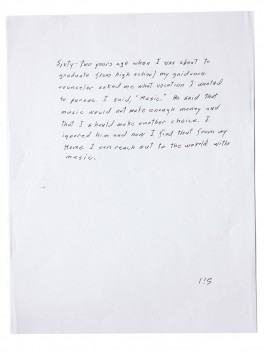 Sixty-two years ago when I was about to
graduate from high school my guidance
counselor asked me what vocation I wanted
to pursue. I said, "Music." He said that
music would not make enough money and
that I should make another choice. I
ignored him and now I find that from my
home I can reach out to the world with
music.